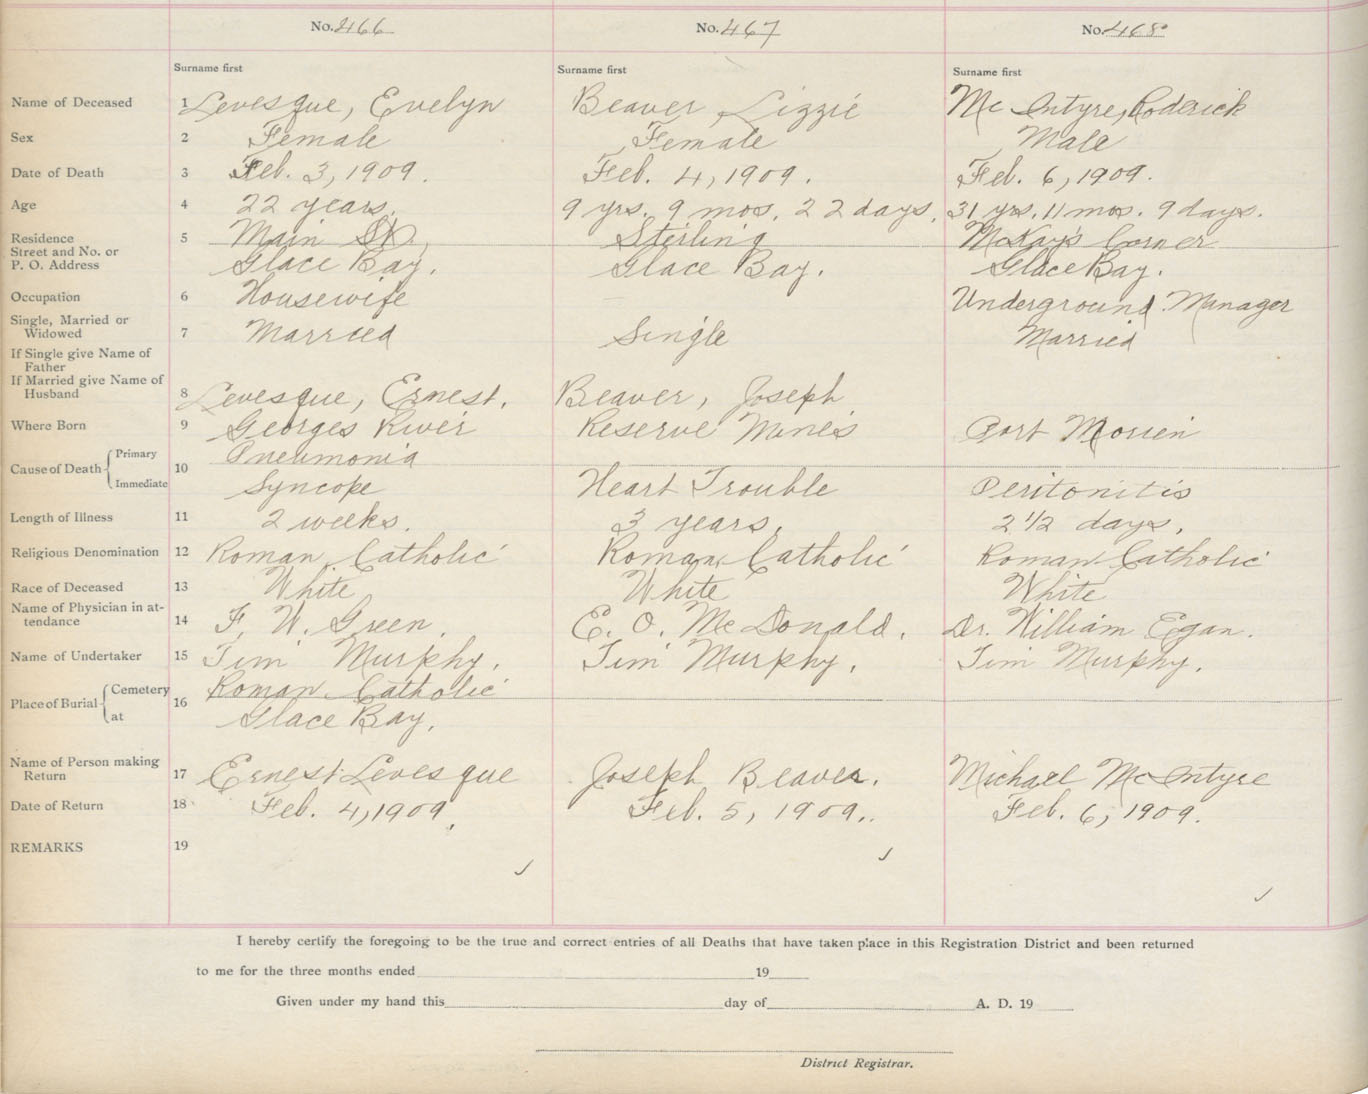 No. 466 No. 467 No. 468
Surname first Surname first Surname first
Name of Deceased 1 Levesque, Evelyn Beaver Lizzie McIntyre, Roderick
Sex 2 Female Female Male
Date of Death 3 Feb. 3, 1909. Feb. 4, 1909. Feb. 6, 1909.
Age 4 22 years. 9 yrs. 9 mos. 22 days. 31 yrs. 11 mos. 9 days.
Residence 5 Main St. Sterling McKay's Corner
Street and No. or
P. O. Address Glace Bay. Glace Bay. Glace Bay.
Occupation 6 Housewife Underground Manager
Single, Married or
Widowed 7 Married Single Married
If Single give Name of
Father
If Married give Name of
Husband 8 Levesque, Ernest. Beaver, Joseph
Where Born 9 Georges River Reserve Mines Port Morien
Cause of Death 10 Primary Pneumonia
Immediate Syncope Heart Trouble Peritonitis
Length of Illness 11 2 weeks. 3 years. 2 1/2 days.
Religious Denomination 12 Roman Catholic Roman Catholic Roman Catholic
Race of Deceased 13 White White White
Name of Physician in at-
tendance 14 F. W. Green. E. O. McDonald. Dr. William Egan.
Name of Undertaker 15 Jim Murphy. Jim Murphy. Jim Murphy.
Place of Burial 16 Cemetery Roman Catholic
at Glace Bay.
Name of Person making
Return 17 Ernest Levesque Joseph Beaver. Michael McIntyre
Date of Return 18 Feb. 4, 1909. Feb. 5, 1909. Feb. 6, 1909.
REMARKS 19
I hereby certify the foregoing to be the true and correct entries of all Deaths that have taken place in this Registration District and been returned
to me for the three months ended 19
Given under my hand this day of A. D. 19
District Registrar.